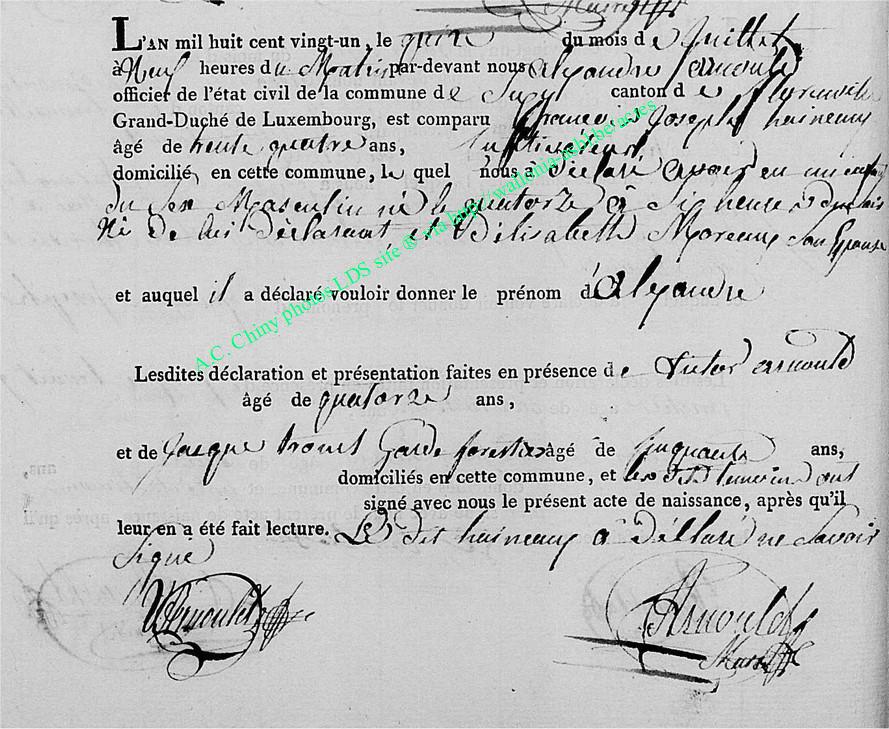 L'AN mil huit cent vingt-un, le quinze du mois de Juillet
à Neuf heures du Matin par-devant nous alexandre arnould
officier de l'état civil de la commune de Suxy canton de florenville
Grand-Duché de Luxembourg, est comparu francois Joseph haineaux
âgé de trente quatre ans,
domicilié en cette commune, le quel nous à déclaré avoir eu un enfant
du sex Masculin né le quatorze à Six heure du soir
Né de lui Déclarant et d'élisabeth Moreaux son Epouse
et auquel il a déclaré vouloir donner le prénom d'alexandre
Lesdites déclaration et présentation faites en présence de Victor arnould
âgé de quatorze ans,
et de Jasque Garde forestier âgé de sinquante ans,
domiciliés en cette commune, et les dits temoins ont
signé avec nous le présent acte de naissance, après qu'il
leur en a été fait lecture. Le dit haineaux à déllaré ne Savoir
Signé
VArnould
AArnould
Maire
A.C. Chiny photos LDS site ® via http://wallonia-asbl.be/actes